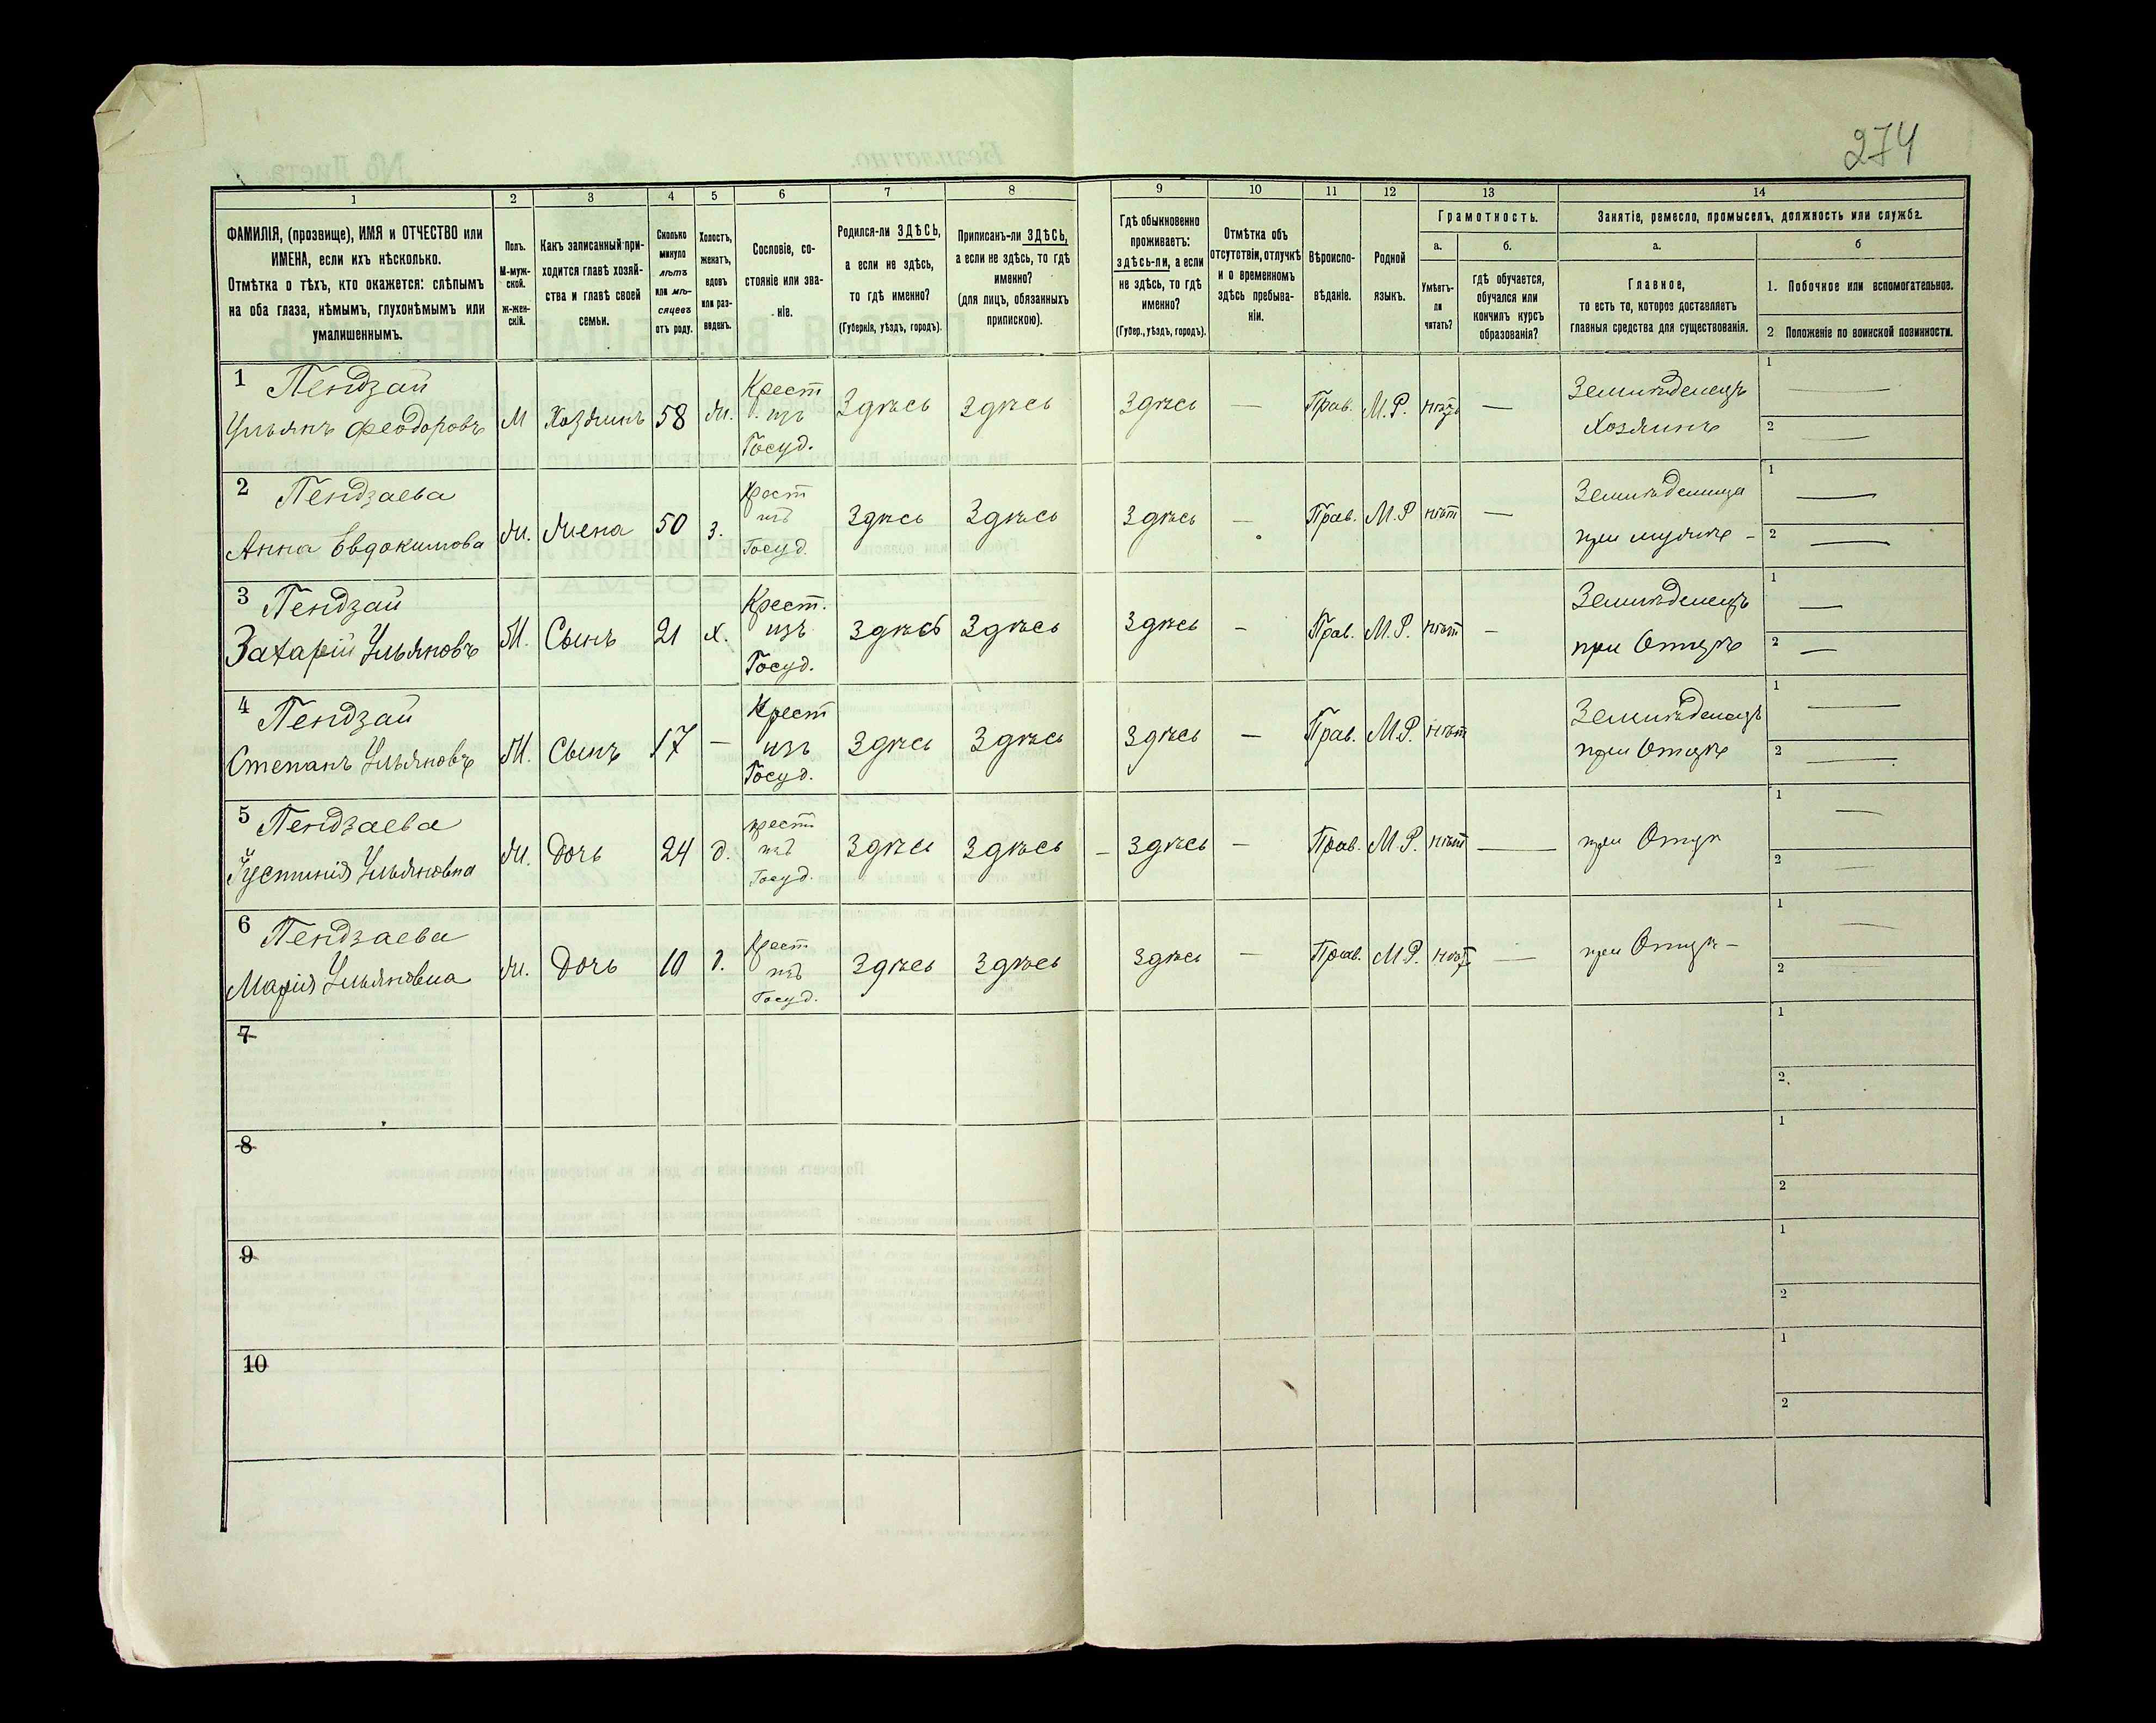 274
1
2
3
4
5
6
7
8
9
10
11
12
13
14
ФАМИЛІЯ, (прозвище), ИМЯ и ОТЧЕСТВО или
ИМЕНА, если ихъ нѣсколько.
Отмѣтка о тѣхъ, кто окажется: слѣпымъ
на оба глаза, нѣмымъ, глухонѣмымъ или
умалишеннымъ.
Полъ.
М-муж-
ской.
Ж-жен-
скій.
Какъ записанный при-
ходится главѣ хозяй-
ства и главѣ своей
семьи.
Сколько
минуло
лѣтъ
или мѣ-
сяцевъ
отъ роду.
Холостъ,
женатъ,
вдовъ
или раз-
веденъ.
Сословіе, со-
стояніе или зва-
ніе.
Родился-ли ЗДѢСЬ,
а если не здѣсь,
то гдѣ именно?
(Губернія, уѣздъ, городъ).
Приписанъ-ли ЗДѢСЬ,
а если не здѣсь, то гдѣ
именно?
(для лицъ, обязанныхъ
припискою).
Гдѣ обыкновенно
проживаетъ:
здѣсь-ли, а если
не здѣсь, то гдѣ
именно?
(Губер., уѣздъ, городъ).
Отмѣтка объ
отсутствіи, отлучкѣ
и о временномъ
здѣсь пребыва-
ніи.
Вѣроиспо-
вѣданіе.
Родной
языкъ.
Грамотность.
а.
Умѣетъ-
ли
читать?
б.
гдѣ обучается,
обучался или
кончилъ курсъ
образованія?
Занятіе, ремесло, промыселъ, должность или служба.
а.
Главное,
то есть то, которое доставляетъ
главныя средства для существованія.
б
1. Побочное или вспомогательное.
2 Положеніе по воинской повинности.
1 Пендзай
Ульянъ Феодоровъ М Хозяинъ 58 ж. Крест изъ Госуд. Здѣсь Здѣсь Здѣсь — Прав. М.Р. нѣтъ — Земледѣлецъ Хозяинъ 1 — 2 —
2 Пендзаева
Анна Евдокимова Ж. Жена 50 з. Крест изъ Госуд. Здѣсь Здѣсь Здѣсь — Прав. М.Р нѣт — при мужѣ — 1 — 2 —
3 Пендзай
Захарій Ульяновъ М. Сынъ 21 х. Крест. изъ Госуд. Здѣсь Здѣсь Здѣсь — Прав. М.Р. нѣт — Земледѣлецъ при Отцѣ 1 — 2 —
4 Пендзай
Степанъ Ульяновъ М. Сынъ 17 — Крест изъ Госуд. Здѣсь Здѣсь Здѣсь — Прав. М.Р. нѣт Земледѣлецъ при Отцѣ 1 — 2 —
5 Пендзаева
Іустинія Ульяновна Ж. Дочь 24 д. крест изъ Госуд. Здѣсь Здѣсь — Здѣсь — Прав. М.Р. нѣт — при Отцѣ 1 — 2 —
6 Пендзаева
Марія Ульяновна Ж. Дочь 10 д. Крест изъ Госуд. Здѣсь Здѣсь Здѣсь — Прав. М.Р. нѣтъ — при Отцѣ — 1 — 2
7 1 2
8 1 2
9 1 2
10 1 2